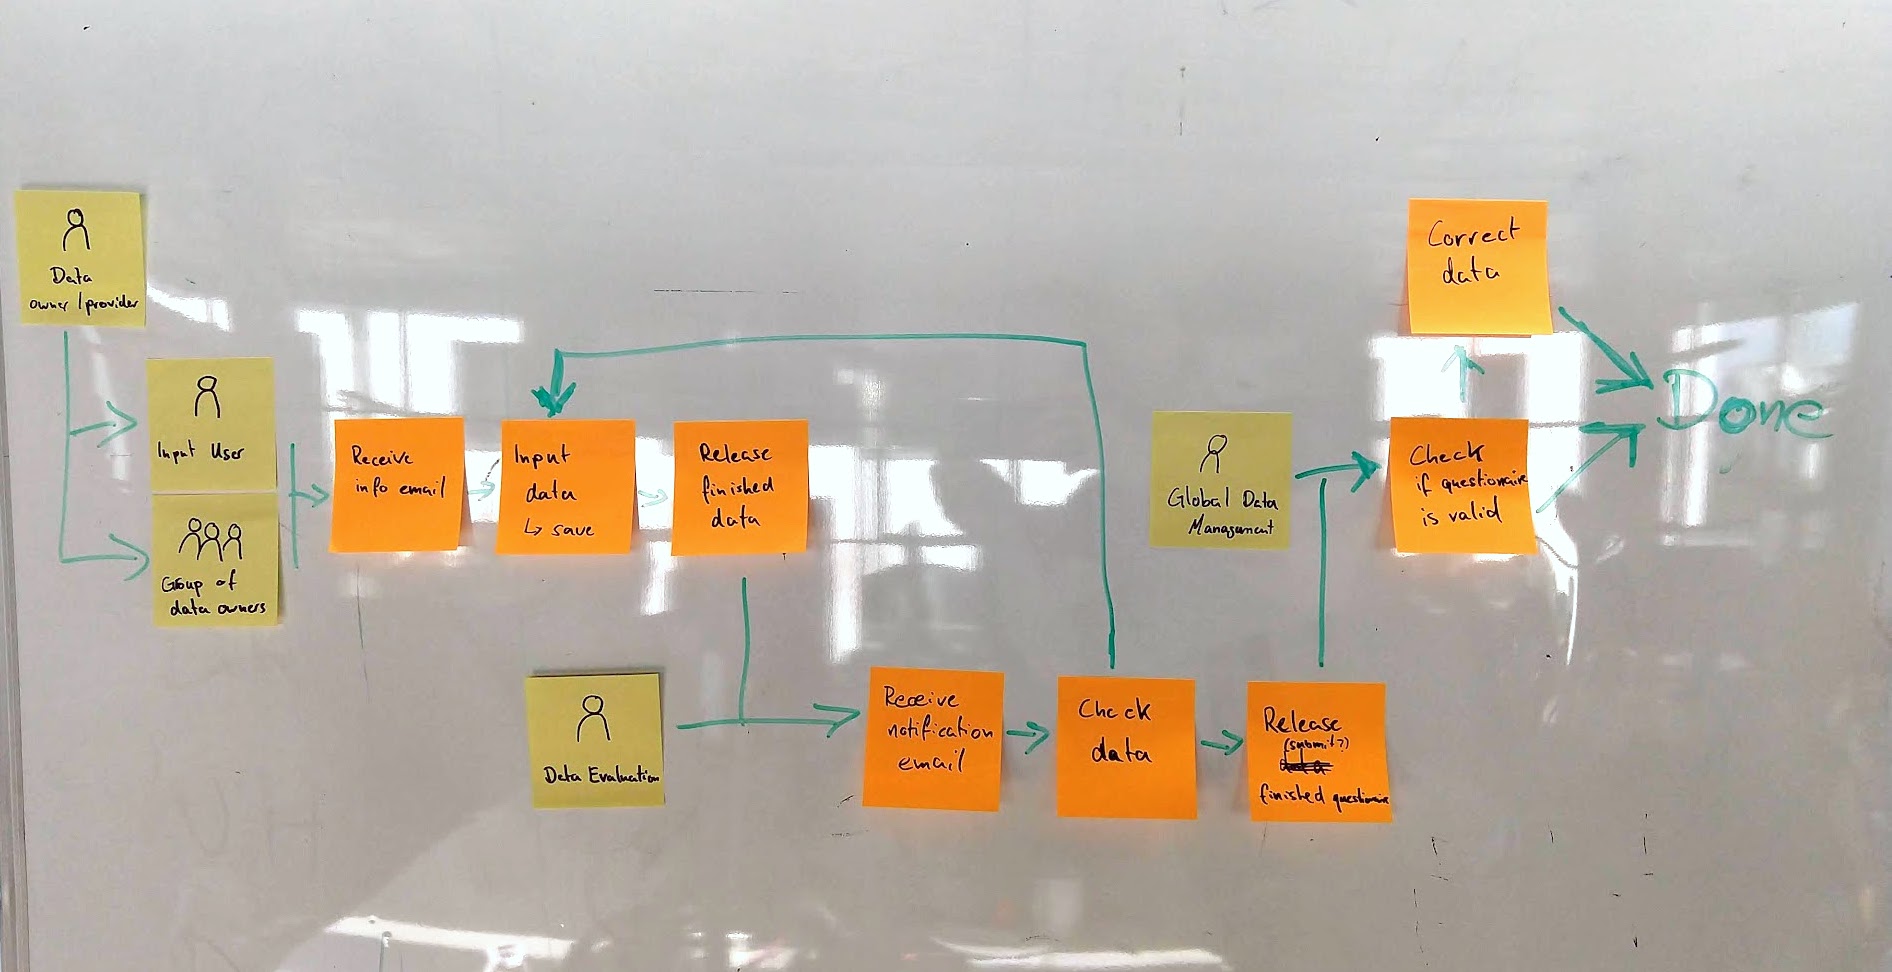 Data
owner/provider
Input User
Group of
data owners
Receive
info email
Input
data
↳ save
Release
finished
data
Data Evaluation
Receive
notification
email
Check
data
Release
(submit?)
finished questionaire
Global Data
Management
Check
if questionaire
is valid
Correct
data
Done